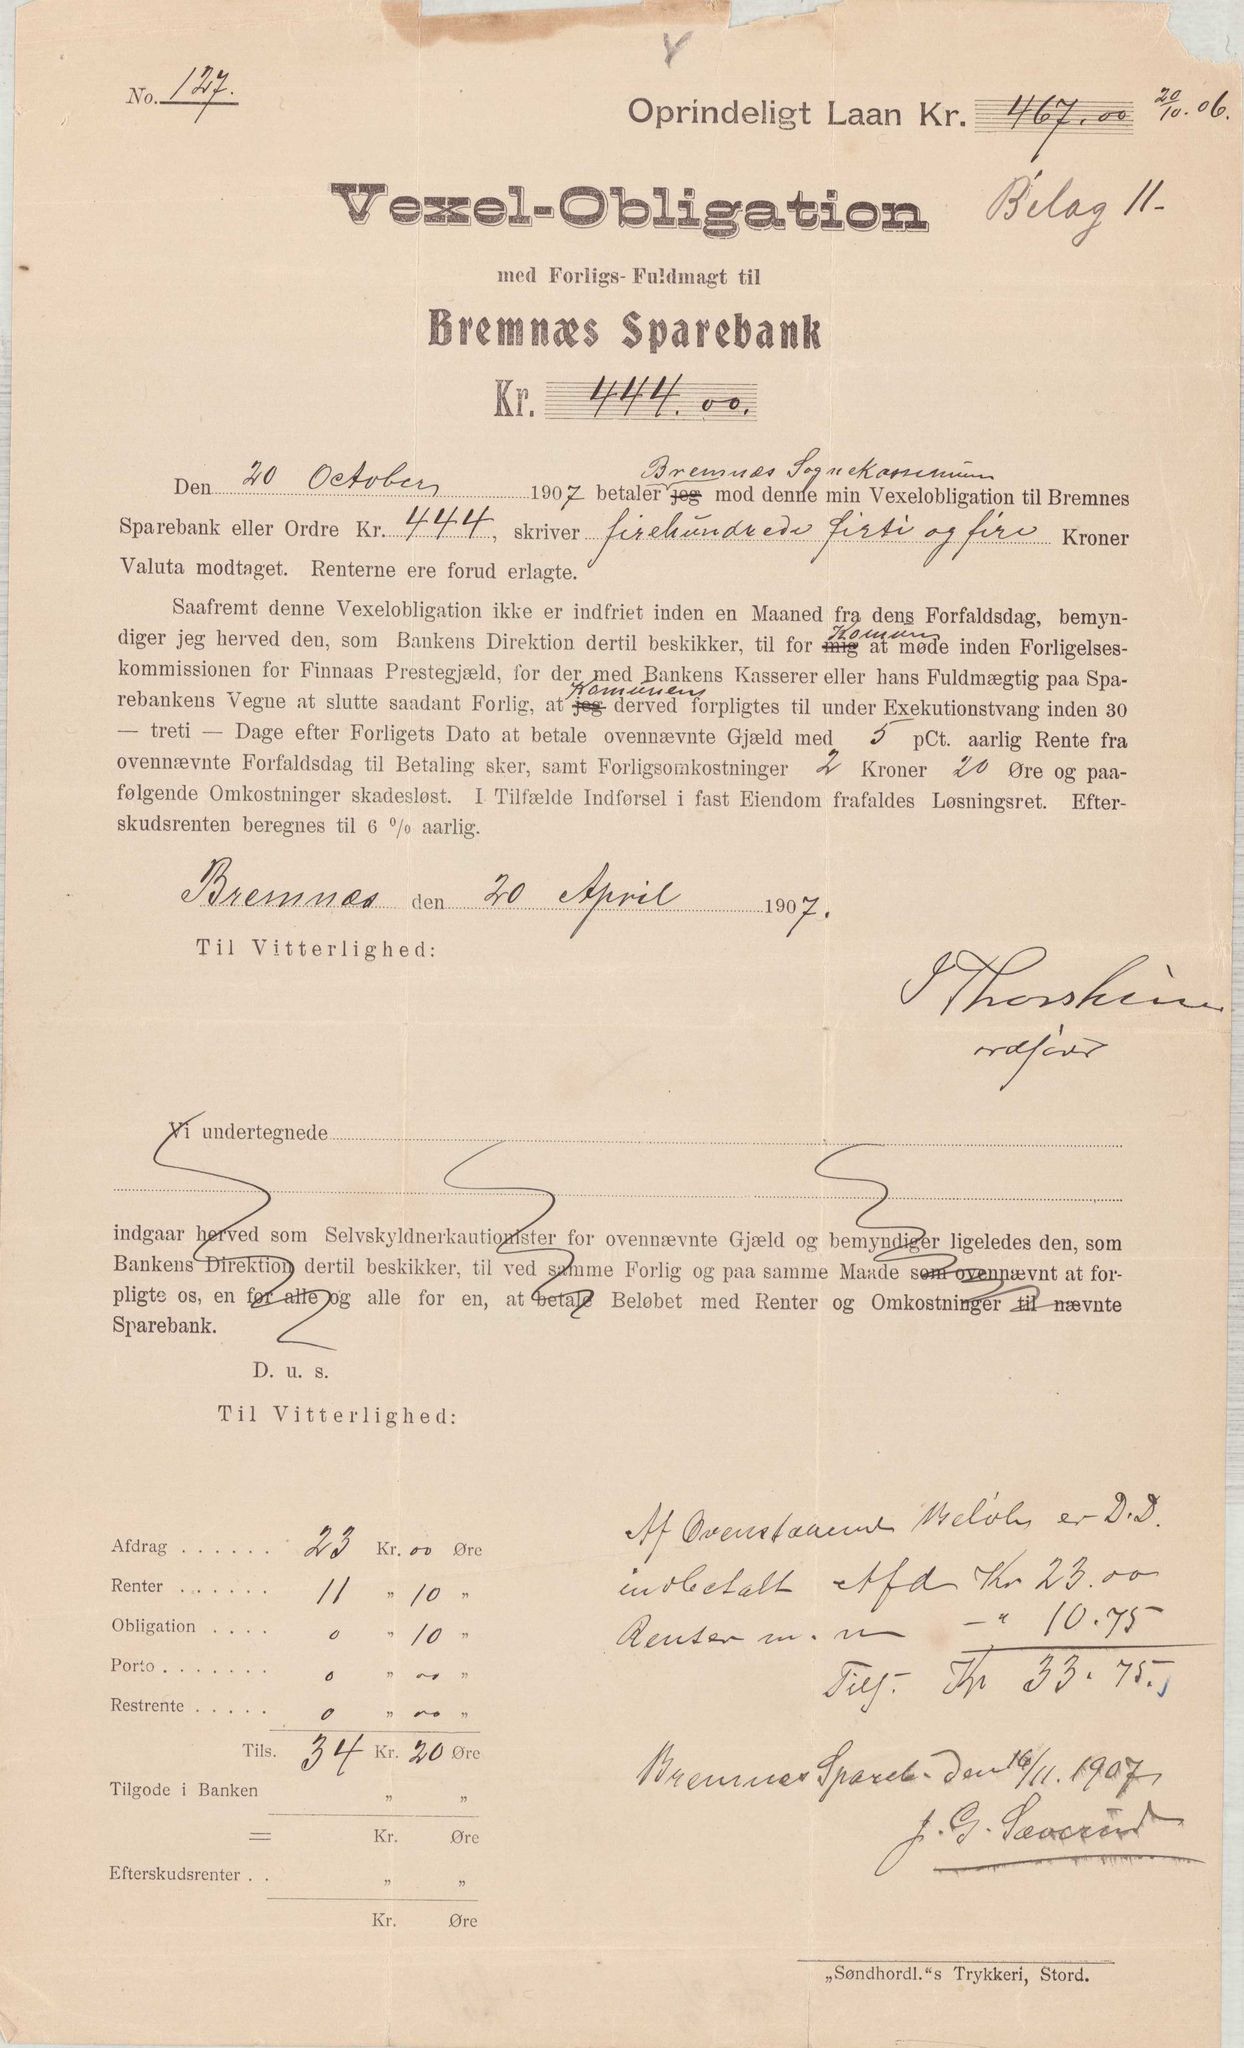 No. 127.
Oprindeligt Laan Kr. 467.00 20/10.06.
Vexel-Obligation
Bilag 11-
med Forligs-Fuldmagt til
Bremnæs Sparebank
Kr. 444.00.
Bremnæs Sognekasse
Den 20 October 1907 betaler jeg mod denne min Vexelobligation til Bremnes
Sparebank eller Ordre Kr. 444, skriver firehundrede firti og fire Kroner
Valuta modtaget. Renterne ere forud erlagte.
Saafremt denne Vexelobligation ikke er indfriet inden en Maaned fra dens Forfaldsdag, bemyn-
Komunen
diger jeg herved den, som Bankens Direktion dertil beskikker, til for mig at møde inden Forligelses-
kommissionen for Finnaas Prestegjæld, for der med Bankens Kasserer eller hans Fuldmægtig paa Spa-
Komunens
rebankens Vegne at slutte saadant Forlig, at jeg derved forpligtes til under Exekutionstvang inden 30
— treti — Dage efter Forligets Dato at betale ovennævnte Gjæld med 5 pCt. aarlig Rente fra
ovennævnte Forfaldsdag til Betaling sker, samt Forligsomkostninger 2 Kroner 20 Øre og paa-
følgende Omkostninger skadesløst. I Tilfælde Indførsel i fast Eiendom frafaldes Løsningsret. Efter-
skudsrenten beregnes til 6 % aarlig.
Bremnæs den 20 April 1907.
Til Vitterlighed:
ordfører
Vi undertegnede
indgaar herved som Selvskyldnerkautionister for ovennævnte Gjæld og bemyndiger ligeledes den, som
Bankens Direktion dertil beskikker, til ved samme Forlig og paa samme Maade som ovennævnt at for-
pligte os, en for alle og alle for en, at betale Beløbet med Renter og Omkostninger til nævnte
Sparebank.
D. u. s.
Til Vitterlighed:
Af Ovenstaaende Beløb er D.D.
indbetalt Afd Kr 23.00
Renter m. m — " 10.75
Tils. Kr 33.75.
Bremnes Spareb. den 16/11.1907
J. G. Sæverud
Afdrag . . . . . . 23 Kr. 00 Øre
Renter . . . . . . 11 „ 10 „
Obligation . . . . 0 „ 10 „
Porto . . . . . . . 0 „ 00 „
Restrente . . . . . 0 „ 00 „
Tils. 34 Kr. 20 Øre
Tilgode i Banken „ „
= Kr. Øre
Efterskudsrenter . . „ „
Kr. Øre
„Søndhordl.“s Trykkeri, Stord.